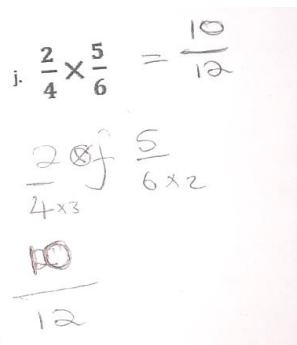 j. 2/4 × 5/6 = 10/12
2/4×3 of 5/6×2
10/12